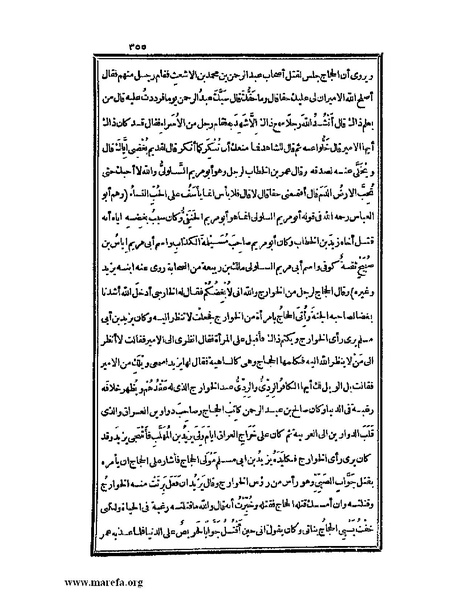 ٣٥٥
ويروى أن الحجاج جلس لقتل أصحاب عبد الرحمن بن محمد بن الاشعث فقام رجل منهم فقال
أصلح الله الامير ان لى عليك حقا قال وما حقك قال سبك عبد الرحمن يوما فرددت عليه قال من
يعلم ذاك قال أنشد الله رجلا سمع ذاك الا شهد به فقام رجل من الأسراء فقال قد كان ذاك
أيها الامير قال خلوا عنه ثم قال للشاهد فما منعك أن تنكر كما أنكر قال لقديم بغضى اياك قال
ويخلى عنه لصدقه وقال عمر بن الخطاب لرجل وهو أبو مريم السلولى والله لا أحبك حتى
تحب الارض الدم قال أفتمنعنى حقا قال لا قال فلا بأس انما يأسف على الحب النساء (وهم أبو
العباس رحمه الله فى قوله أبو مريم السلولى انما هو أبو مريم الحنفى وكان سبب بغضه اياه أنه
قتل أخاه زيد بن الخطاب وكان أبو مريم صاحب مسيلة الكذاب واسم أبى مريم اياس بن
صبيح كوفى واسم أبى مريم السلولى مالك بن ربيعة من الصحابة روى عنه ابنه يزيد
وغيره) وقال الحجاج لرجل من الخوارج والله انى لأبغضكم فقال له الخارجى أدخل الله أشدنا
بغضا لصاحبه الجنة وأتى الحجاج بامرأة من الخوارج فجعلت لا تنظر اليه وكان يزيد بن أبى
مسلم يرى رأى الخوارج ويكتم ذاك فأقبل على المرأة فقال انظرى الى الامير فقالت لا أنظر
الى من لا ينظر الله اليه فكلمها الحجاج وهى كالساهية فقال لها يزيد اسمعى ويلك من الامير
فقالت بل الويل لك أيها الكافر الردى والردى عند الخوارج الذى له عقدهم ويظهر خلافه
رغبة فى الدنيا وكان صالح بن عبد الرحمن كاتب الحجاج وصاحب دواوين العراق والذى
قلب الدواوين الى العربية ثم كان على خراج العراق أيام ولى يزيد بن المهلب فأشجى يزيد وقد
كان يرى رأى الخوارج فكايده يزيد بن أبى مسلم مولى الحجاج فأشار على الحجاج ان يأمره
بقتل جواب الضبى وهو رأس من رؤس الخوارج وقال يزيد ان فعل برئت منه الخوارج
وقتلته وان أمسك قتله الحجاج فقتله وخبرت أنه قال والله ما قتلته رغبة فى الحياة ولكنى
خفت يسبى الحجاج بناتى وكان يقول انى حين أقتل جوابا لحريص على الدنيا فلما عذبه عمر
www.marefa.org